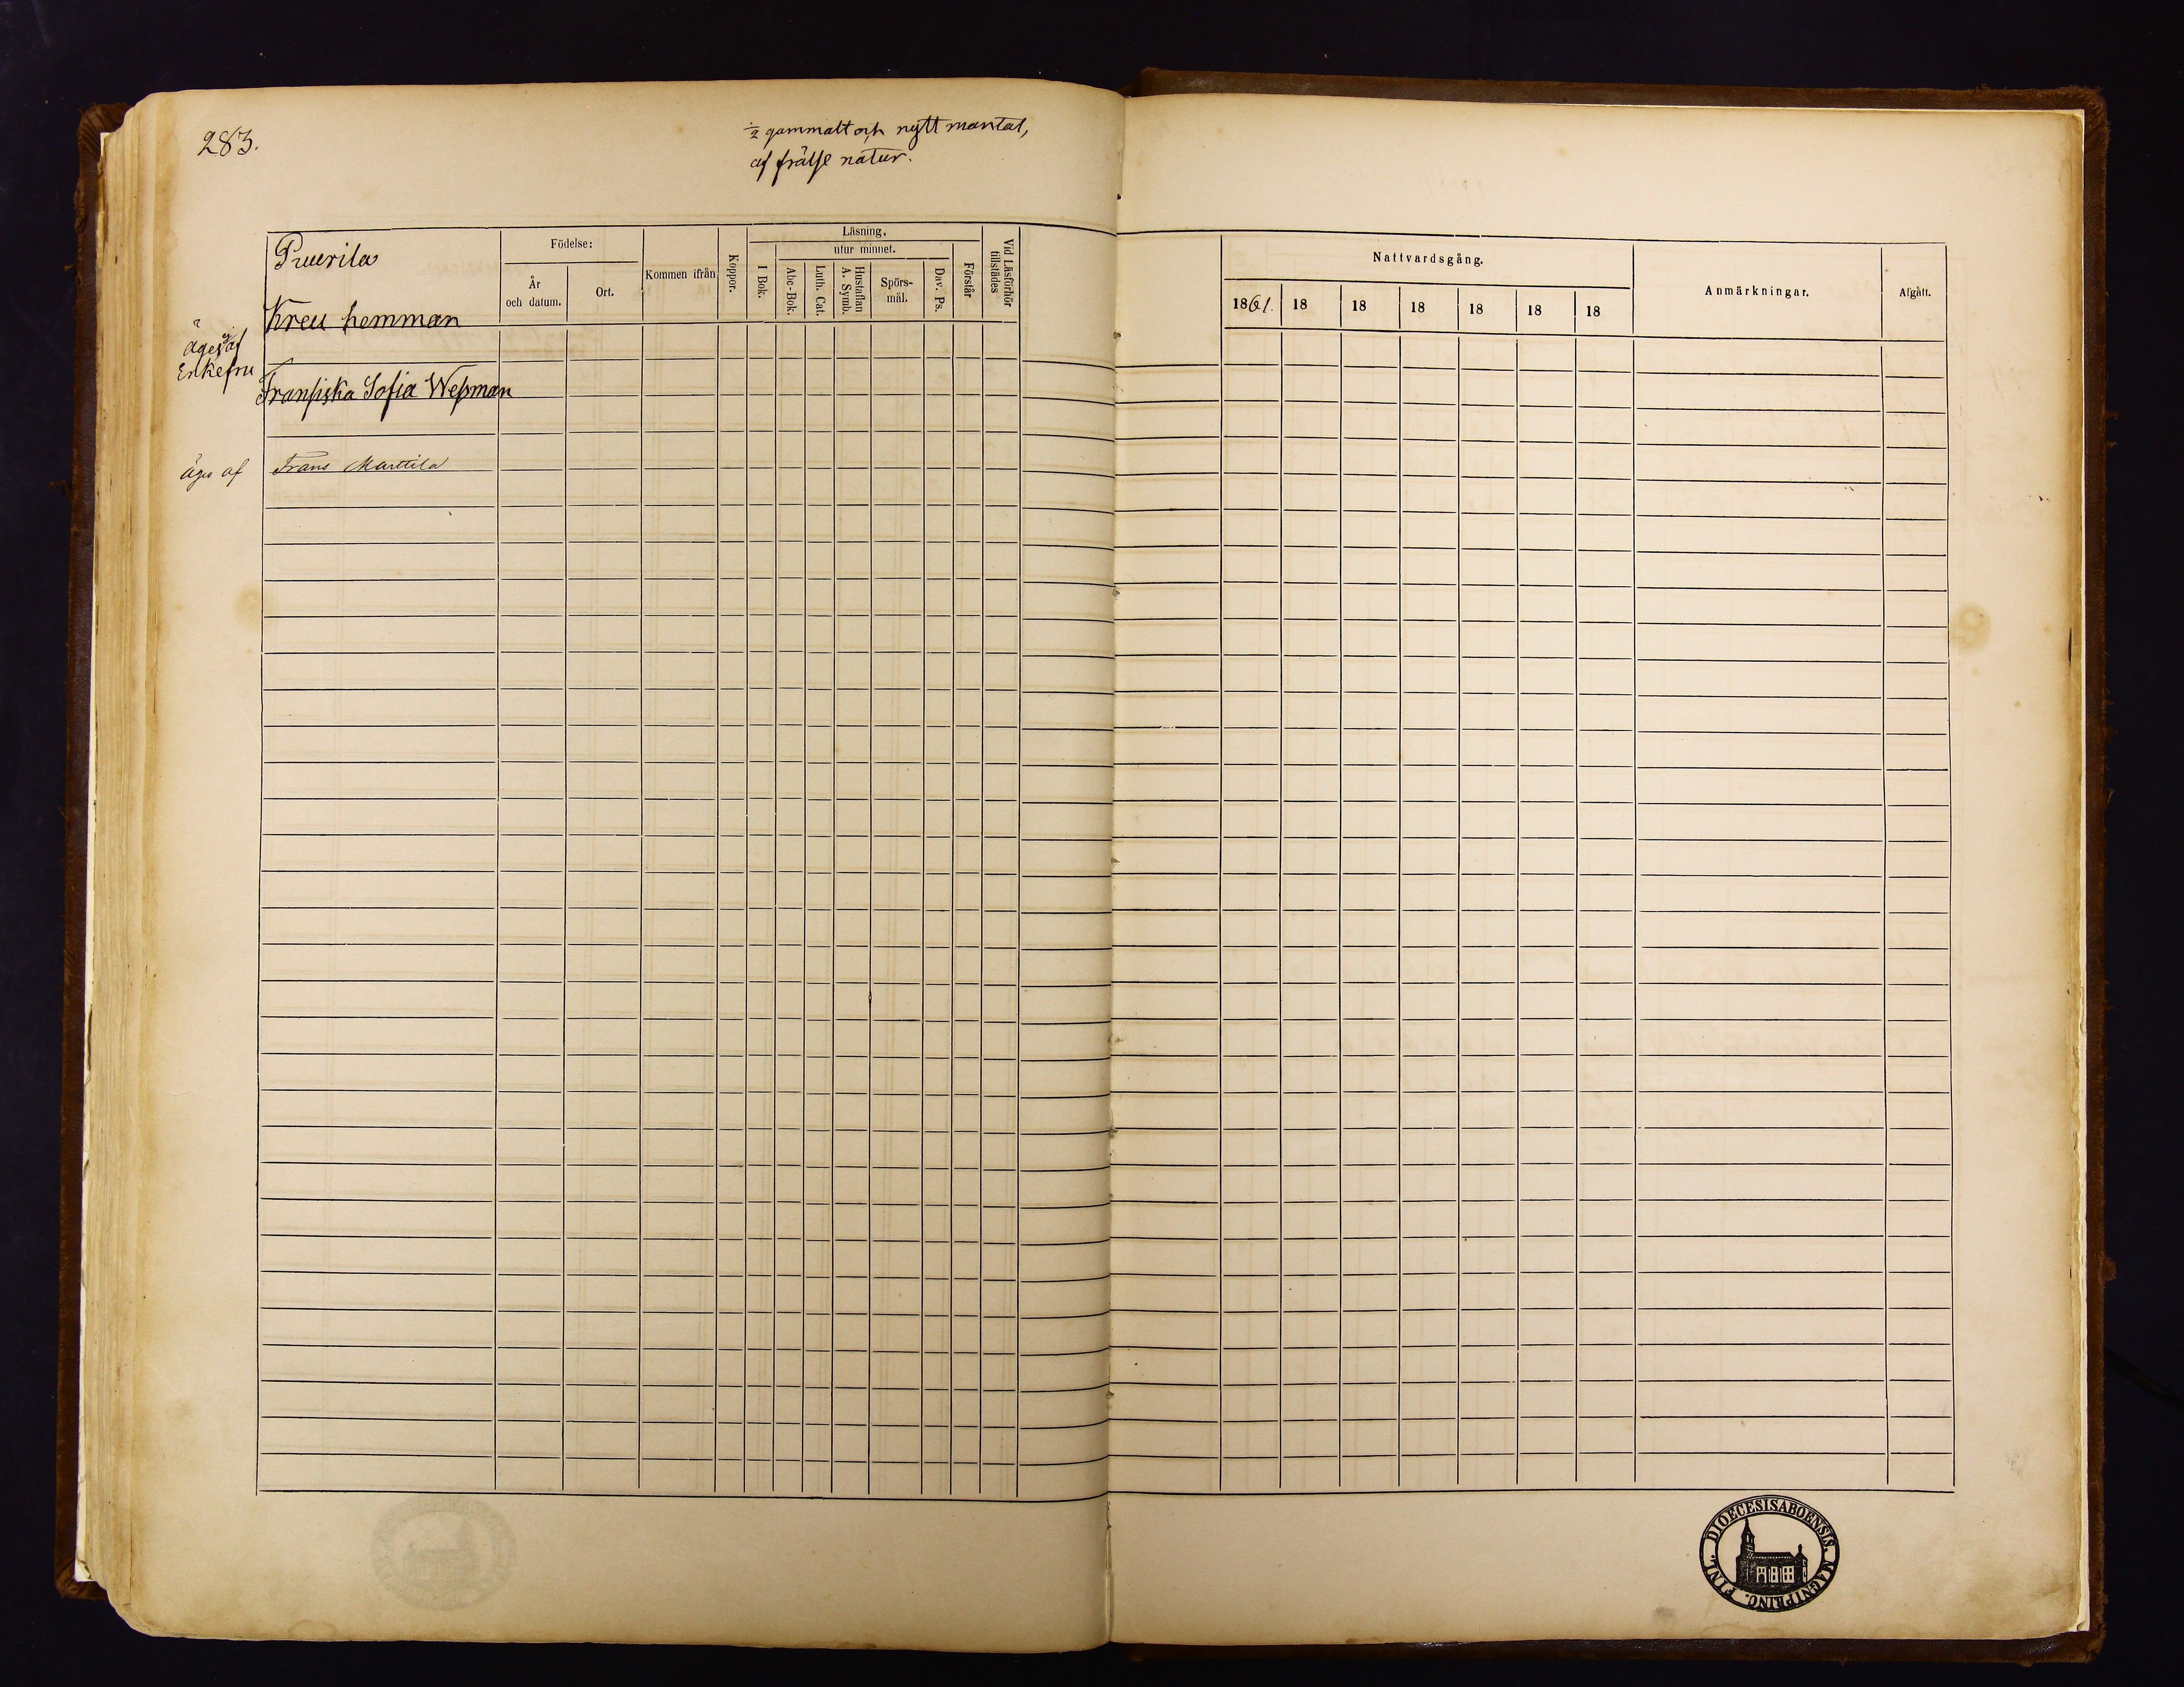 283.
½ gammalt och nytt mantal,
af frälse natur.
Puurila
Kreu hemman
äges af
Enkefru
Fransiska Sofia Wessman
äges af Frans Marttila
Födelse:
År
och datum.
Ort.
Kommen ifrån
Koppor.
Läsning,
utur minnet.
I Bok.
Abc-Bok.
Luth. Cat.
Hustaflan
A. Symb.
Spörs-
mål.
Dav. Ps.
Förstår
Vid Läsförhör
tillstädes
Nattvardsgång.
1861. 18 18 18 18 18 18
Anmärkningar.
Afgått.
DIOECESIS ABOENSIS. MAGNI PRINC. FINL.